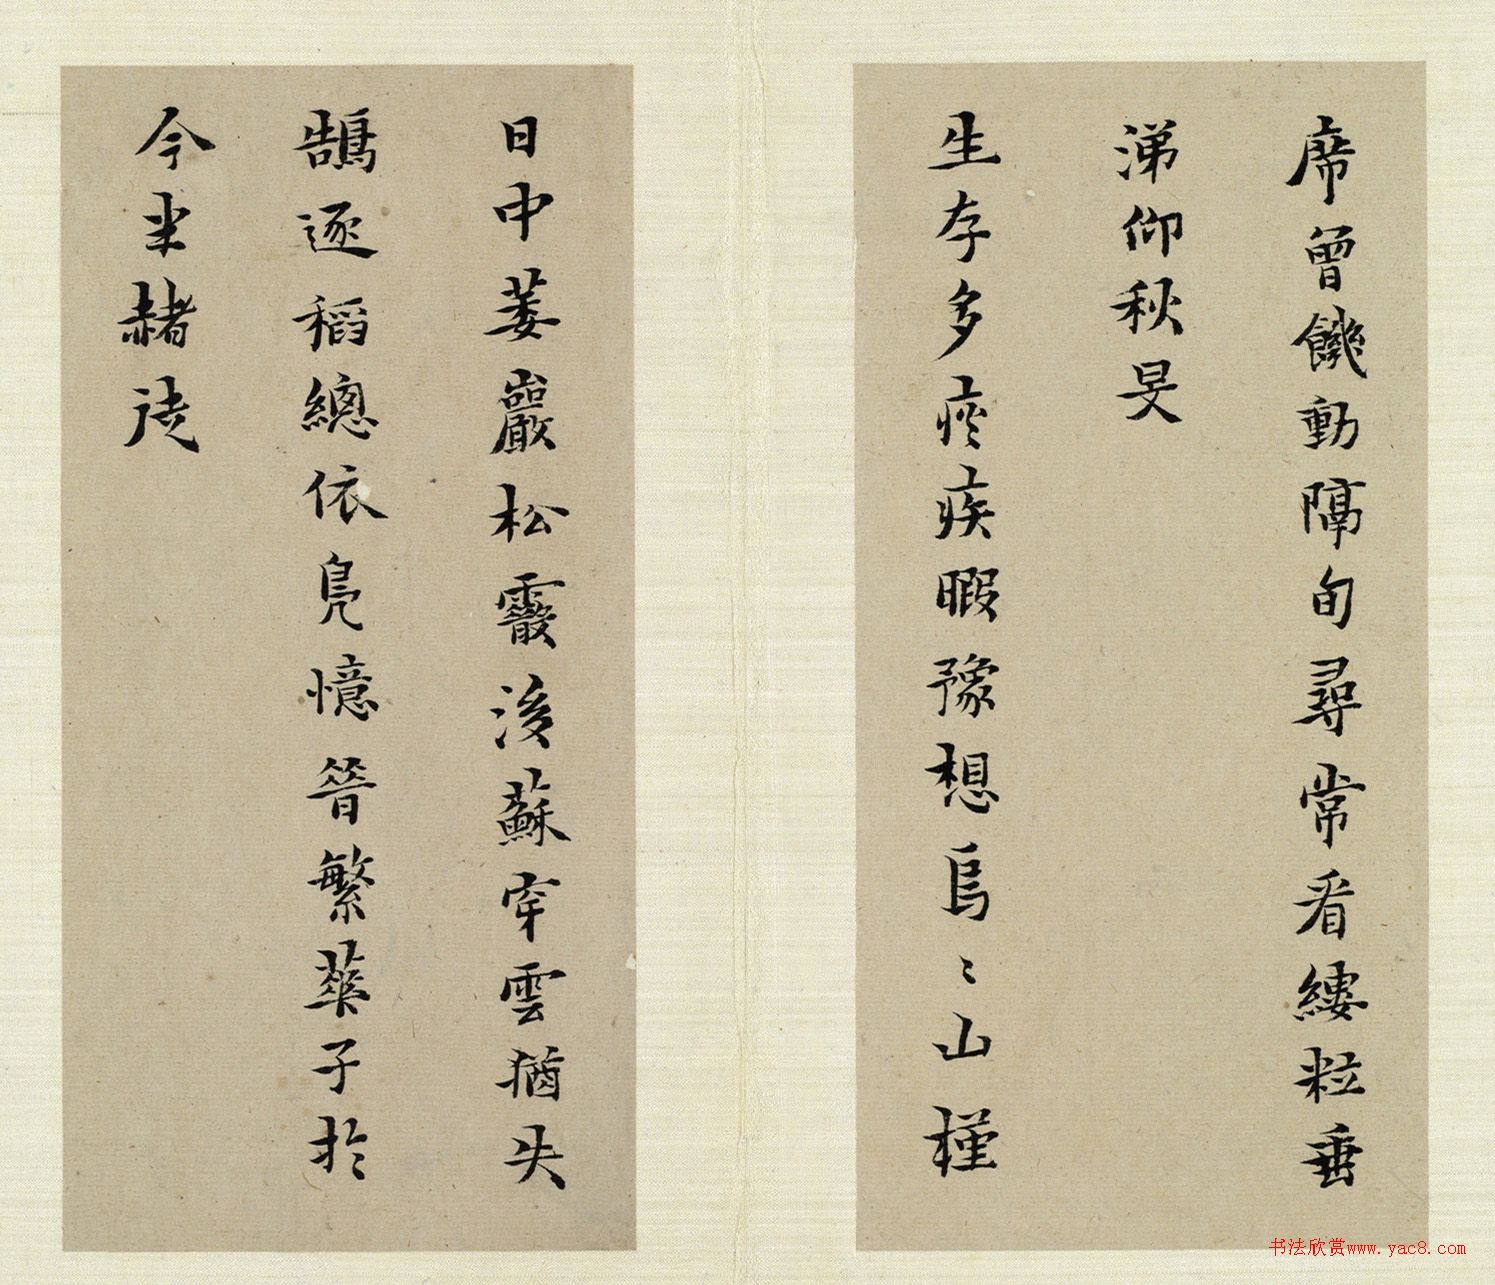 席曾饑動隔旬尋常看縷粒垂
涕仰秋旻
生存多瘞疾暇豫想烏〻山槿
日中萎巖松霰後蘇穿雲猶失
鵠逐稻總依鳧憶昝繁華子於
今半赭徒
书法欣赏www.yac8.com